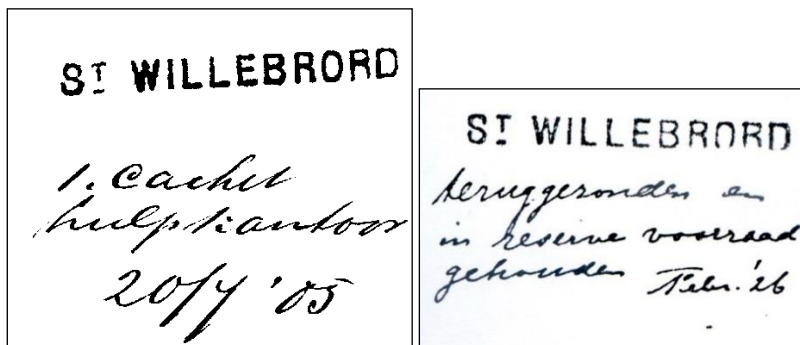 ST WILLEBRORD
1. cachet
hulpkantoor
20/4 '05
ST WILLEBRORD
teruggezonden en
in reserve voorraad
gehouden Febr. '26